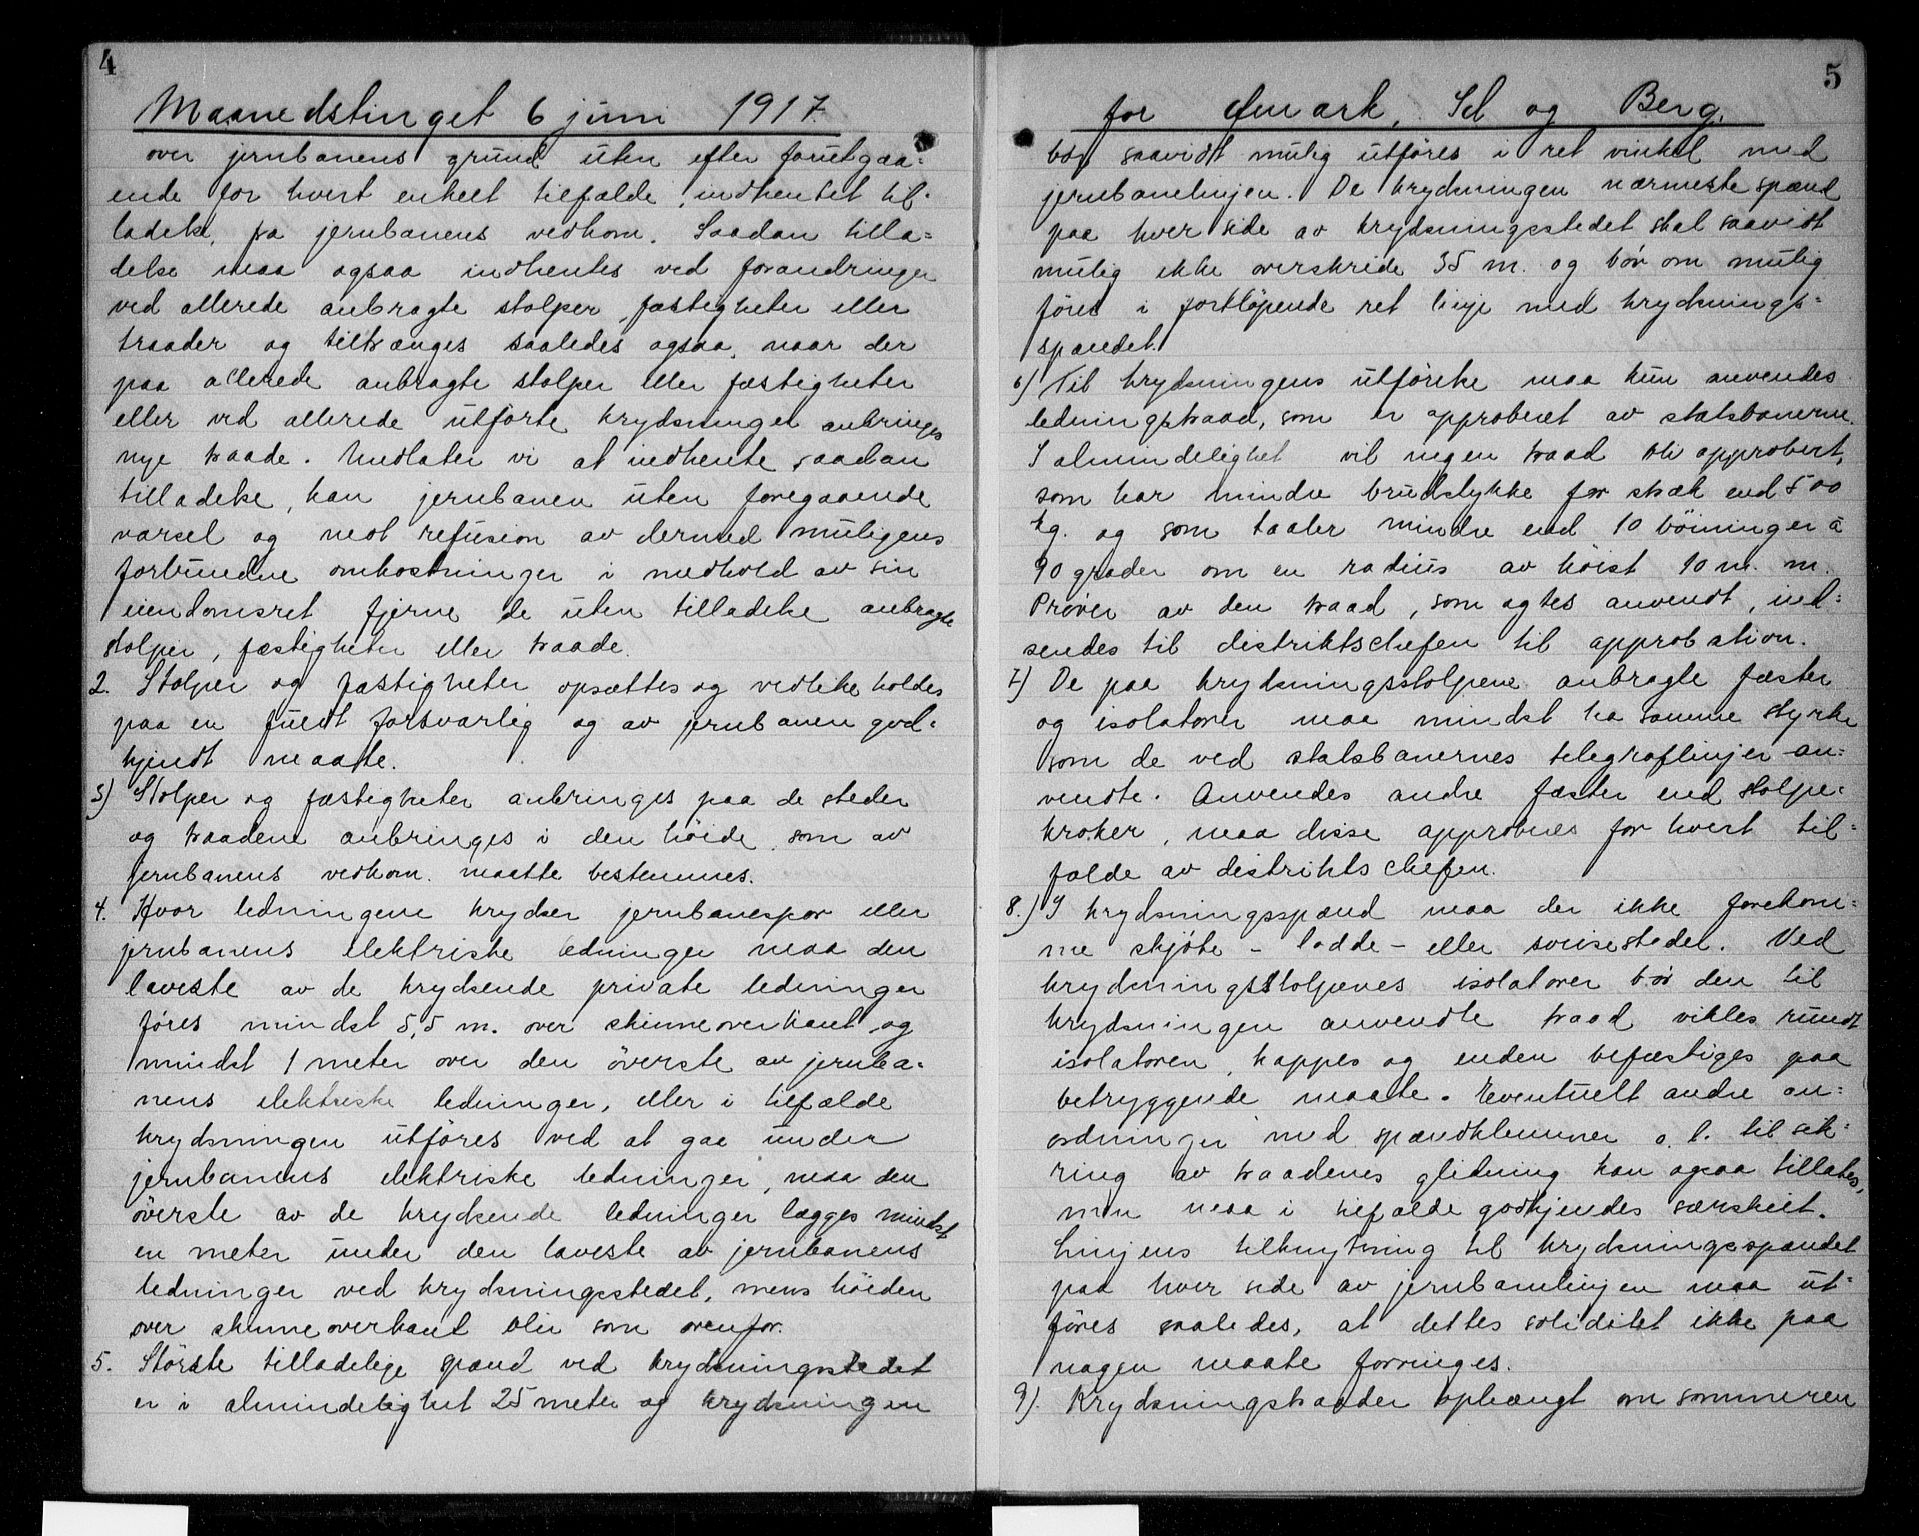 4
Maanedstinget 6 juni 1917.
over jernbanens grund uten efter forutgaa=
ende for hvert enkelt tilfælde, indhentet til=
ladelse, fra jernbanens vedkom. Saadan tilla=
delse maa ogsaa indhentes ved forandringer
ved allerede anbragte stolper, fæstigheter eller
traader og tiltrænges saaledes ogsaa, naar der
paa allerede anbragte stolper eller fæstigheter
eller ved allerede utförte krydsninger anbringes
nye traade. Undlater vi at indhente saadan
tilladelse, kan jernbanen uten foregaaende
varsel og mot refusion av dermed muligens
forbundne omkostninger i medhold av sin
eiendomsret fjerne de uten tilladelse anbragte
stolper, fæstigheter eller traade.
2. Stolper og fæstigheter opsættes og vedlikeholdes
paa en fuldt forsvarlig og av jernbanen god=
kjendt maate.
3) Stolper og fæstigheter anbringes paa de steder
og traadene anbringes i den höide, som av
jernbanens vedkom. maatte bestemmes.
4. Hvor ledningene krydser jernbanespor eller
jernbanens elektriske ledninger maa den
laveste av de krydsende private ledninger
föres mindst 5,5 m. over skinneoverkant og
mindst 1 meter over den överste av jernba=
nens elektriske ledninger, eller i tilfælde
krydsningen utföres ved at gaa under
jernbanens elektriske ledninger, maa den
överste av de krydsende ledninger lægges mindst
en meter under den laveste av jernbanens
ledninger ved krydsningsstedet, mens höiden
over skinneoverkant blir som ovenfor.
5. Störste tilladelige spænd ved krydsningsstedet
er i almindelighet 25 meter og krydsningen
5
for Sel og Berg.
bör saavidt mulig utföres i ret vinkel med
jernbanelinjen. De krydsningen nærmeste spænd
paa hver side av krydsningsstedet skal saavidt
mulig ikke overskride 35 m. og bör om mulig
föres i fortlöpende ret linje med krydsnings=
spændet.
6) Til krydsningens utförelse maa kun anvendes
ledningstraad, som er approberet av statsbanerne.
I almindelighet vil ingen traad bli approbert,
som har mindre brudstykke for stræk end 500
kg. og som taaler mindre end 10 böininger à
90 grader om en radius av höist 10 m. m.
Pröver av den traad, som agtes anvendt, ind=
sendes til distriktschefen til approbation.
7) De paa krydsningsstolpene anbragte fæster
og isolatorer maa mindst ha samme styrke
som de ved statsbanernes telegraflinjer an=
vendte. Anvendes andre fæster end stolpe=
kroker, maa disse approberes for hvert til=
fælde av distriktschefen.
8.) I krydsningsspænd maa der ikke forekom=
me skjöte – lodde – eller sveisesteder. Ved
krydsningsstolpenes isolatorer bör den til
krydsningen anvendte traad vikles rundt
isolatoren, kappes og enden befæstiges paa
betryggende maate. Eventuelt andre an=
ordninger med spændklemmer o. l. til sik=
ring av traadenes glidning kan ogsaa tillates,
men maa i tilfælde godkjendes særskilt.
Linjens tilknytning til krydsningsspændet
paa hver side av jernbanelinjen maa ut=
föres saaledes, at dettes soliditet ikke paa
nogen maate forringes.
9). Krydsningstraader ophængt om sommeren